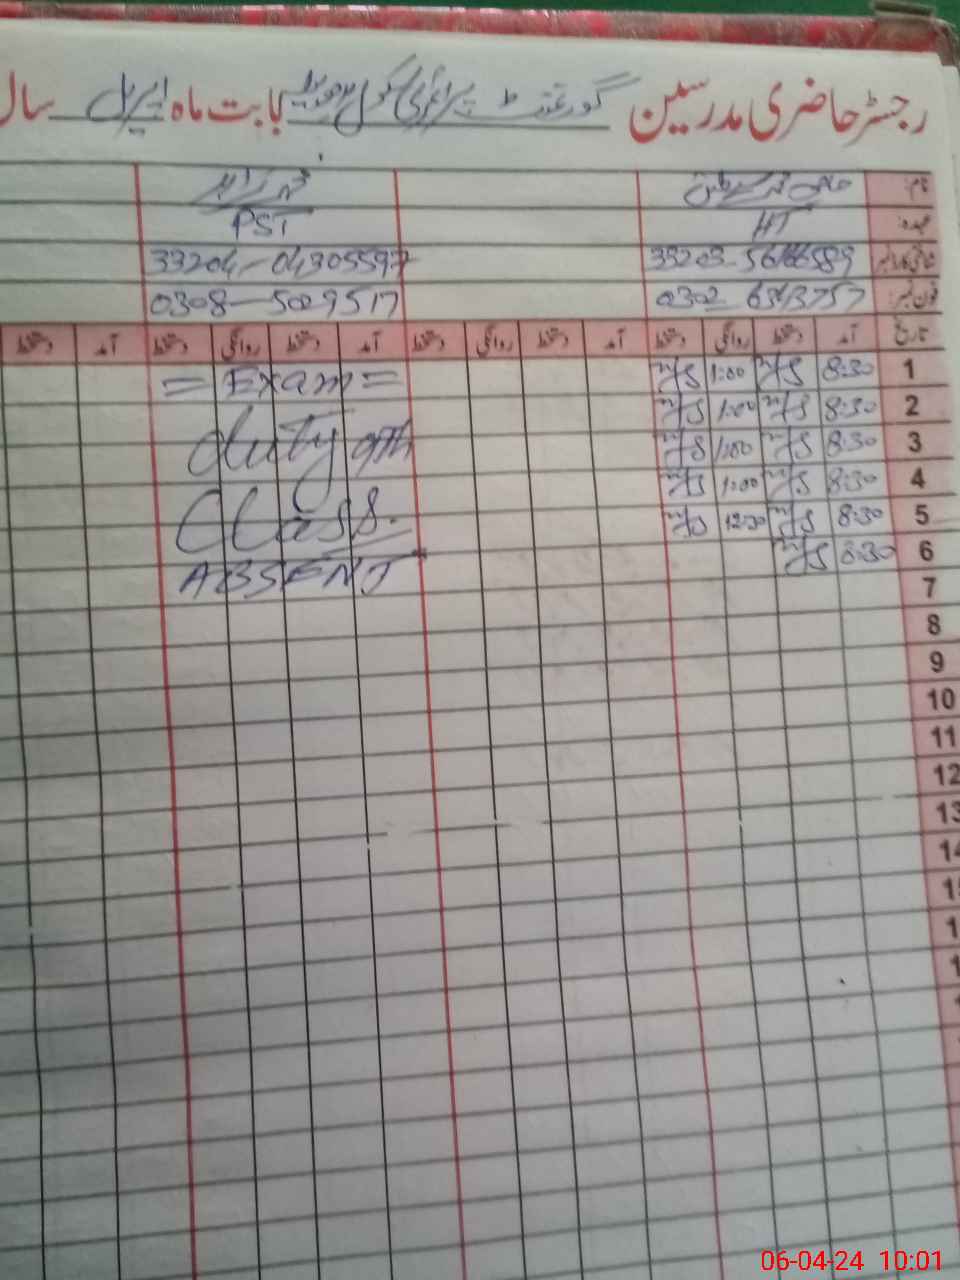 رجسٹر حاضری مدرسین گورنمنٹ پرائمری سکول بابت ماہ اپریل سال
نام:
عہدہ: HT PST
شناختی کارڈ نمبر 33204-04305597
فون نمبر: 0302 0308-5029517
تاریخ آمد دستخط روانگی دستخط آمد دستخط روانگی دستخط آمد دستخط روانگی دستخط آمد دستخط
1 8:30 m/s 1:00 m/s = Exam =
2 8:30 m/s 1:00 m/s duty 9th
3 8:30 m/s 1:00 m/s
4 8:30 m/s 1:00 m/s Class.
5 8:30 m/s 12:30 m/s
6 8:30 m/s ABSENT
7
8
9
10
11
12
13
14
06-04-24 10:01